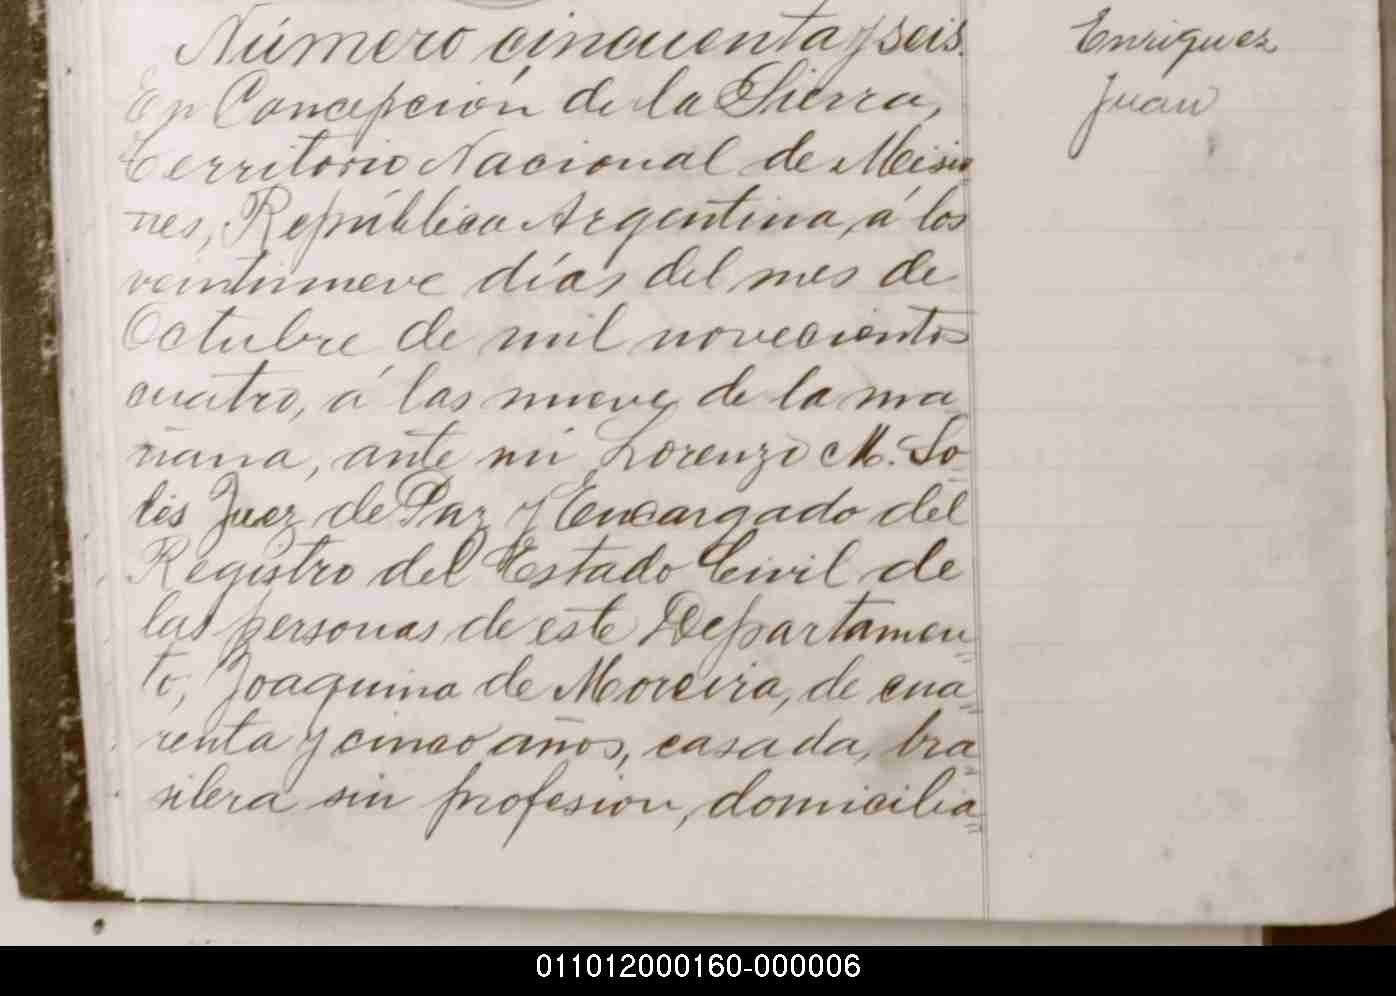 Número cincuenta y seis.
En Concepción de la Sierra,
Territorio Nacional de Misio
nes, República Argentina, á los
veintinueve días del mes de
Octubre de mil novecientos
cuatro, á las nueve de la ma
ñana, ante mi Lorenzo M. So-
lis Juez de Paz y Encargado del
Registro del Estado Civil de
las personas de este Departamen=
to, Joaquina de Moreira, de cua=
renta y cinco años, casada, bra=
silera sin profesion, domicilia=
Enriquez
Juan
011012000160-000006